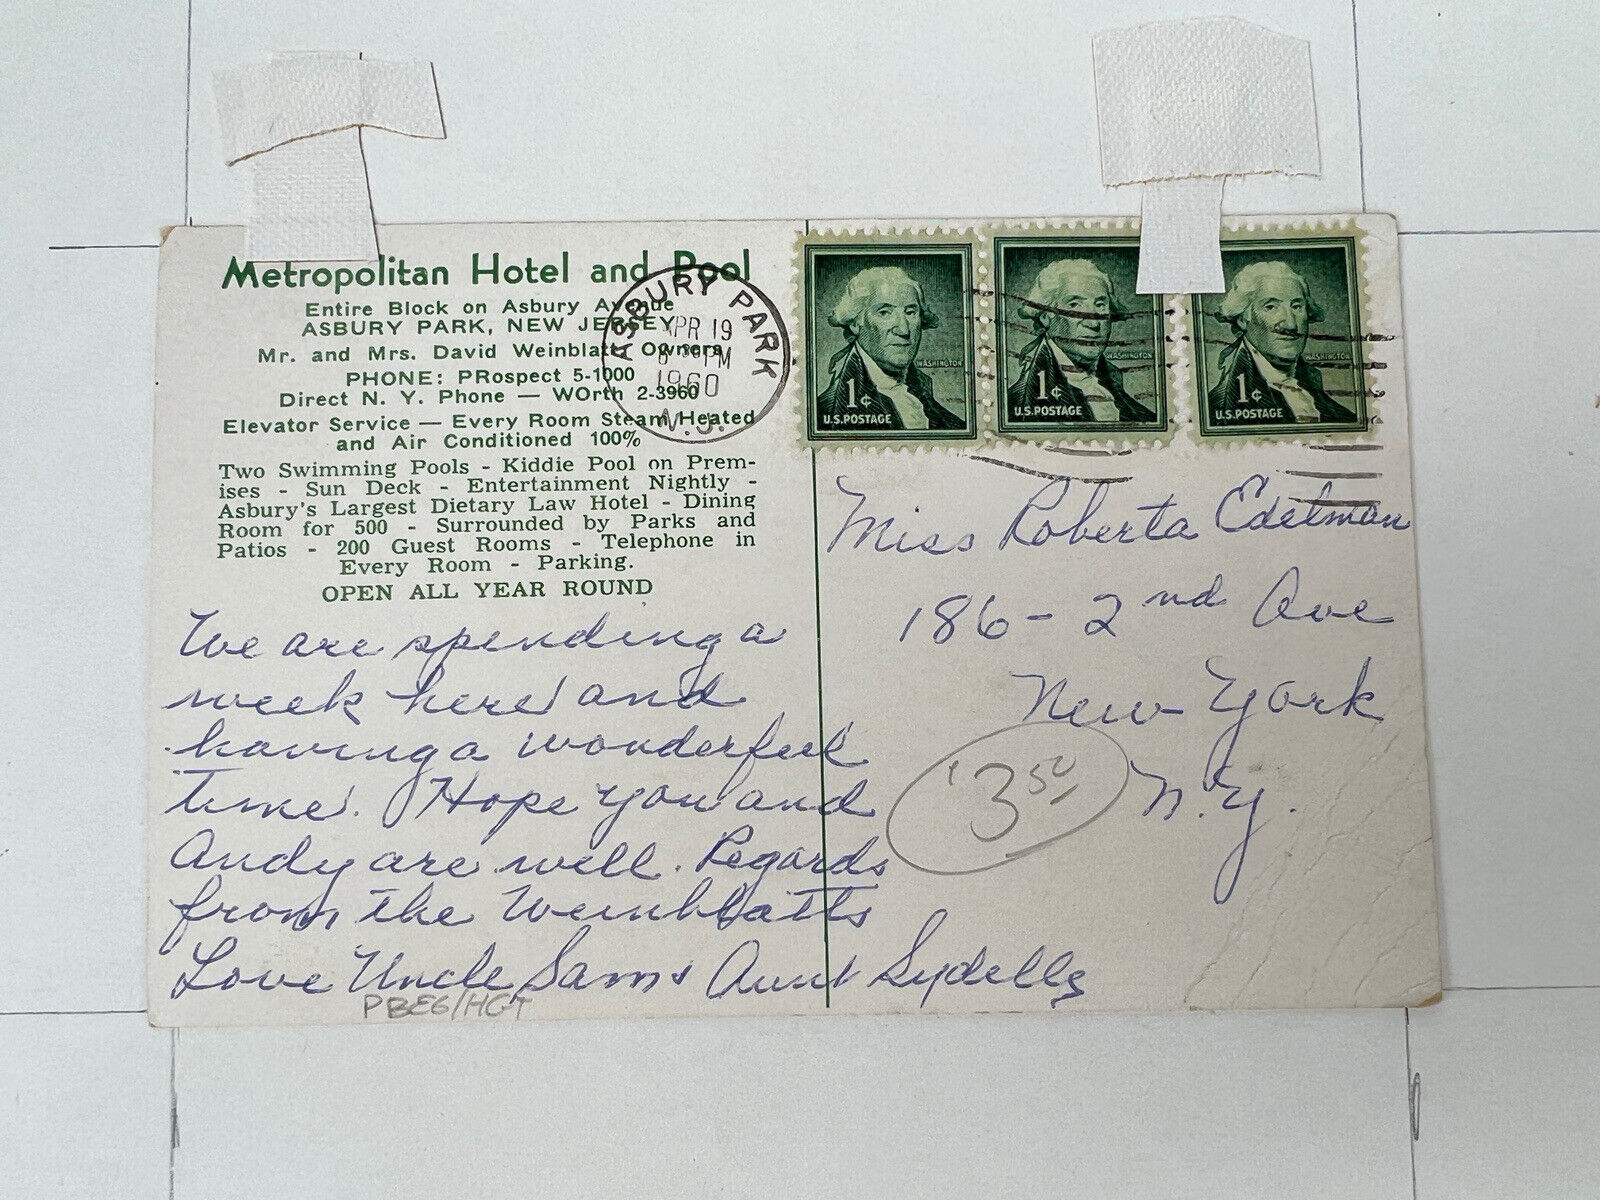 Metropolitan Hotel and Pool
Entire Block on Asbury Avenue
ASBURY PARK, NEW JERSEY
Mr. and Mrs. David Weinblatt, Owners
PHONE: PRospect 5-1000
Direct N. Y. Phone — WOrth 2-3960
Elevator Service — Every Room Steam Heated
and Air Conditioned 100%
Two Swimming Pools - Kiddie Pool on Prem-
ises - Sun Deck - Entertainment Nightly -
Asbury's Largest Dietary Law Hotel - Dining
Room for 500 - Surrounded by Parks and
Patios - 200 Guest Rooms - Telephone in
Every Room - Parking.
OPEN ALL YEAR ROUND
We are spending a
week here and
having a wonderful
time. Hope you and
Andy are well. Regards
from the Weinblatts
Love Uncle Sam & Aunt Sydelle
PBEG/HGT
ASBURY PARK
APR 19
PM
1960
N.J.
1¢
U.S. POSTAGE
WASHINGTON
1¢
U.S. POSTAGE
WASHINGTON
1¢
U.S. POSTAGE
WASHINGTON
Miss Roberta Edelman
186 - 2nd Ave
New York
N.Y.
3 50